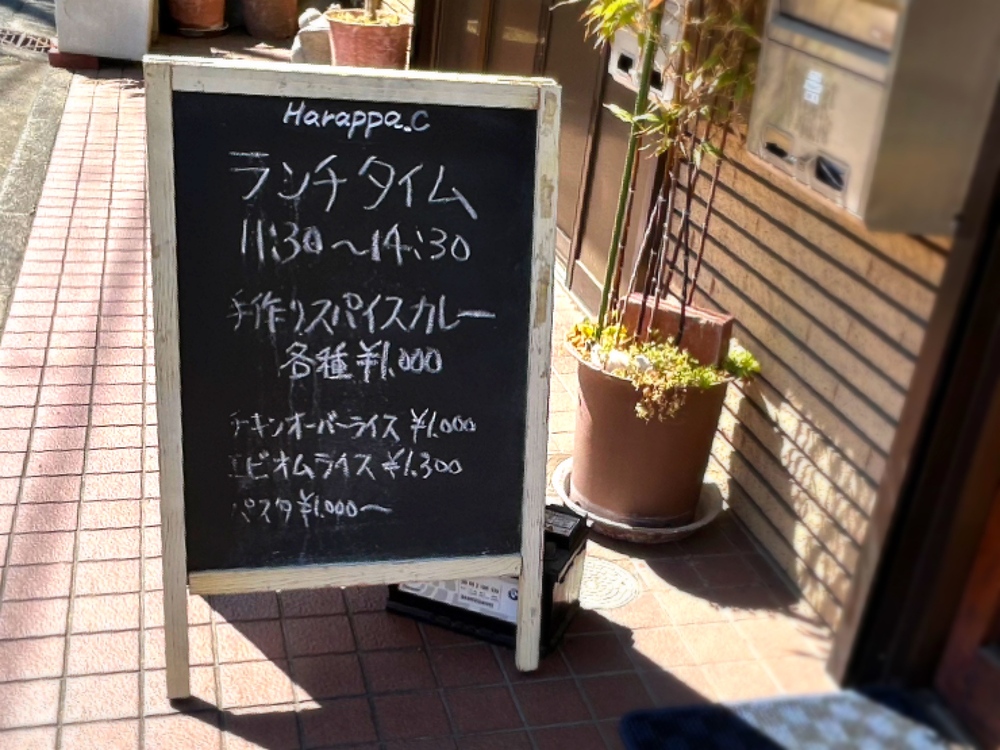 Harappa.C
ランチタイム
11:30～14:30
手作りスパイスカレー
各種¥1.000
チキンオーバーライス ¥1.000
エビオムライス ¥1.300
パスタ ¥1.000～